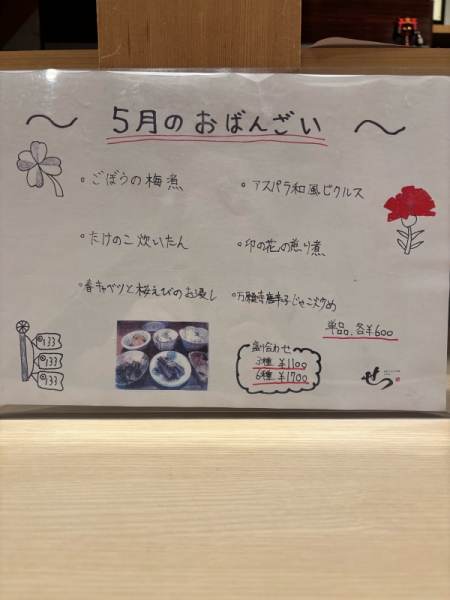 〜 5月のおばんざい 〜
・ごぼうの梅煮
・アスパラ和風ピクルス
・たけのこ炊いたん
・卯の花の煎り煮
・春キャベツと桜えびのお浸し
・万願寺唐辛子じゃこ炒め
単品、各¥600
盛り合わせ
3種 ¥1100
6種 ¥1700
133
133
133
せつ